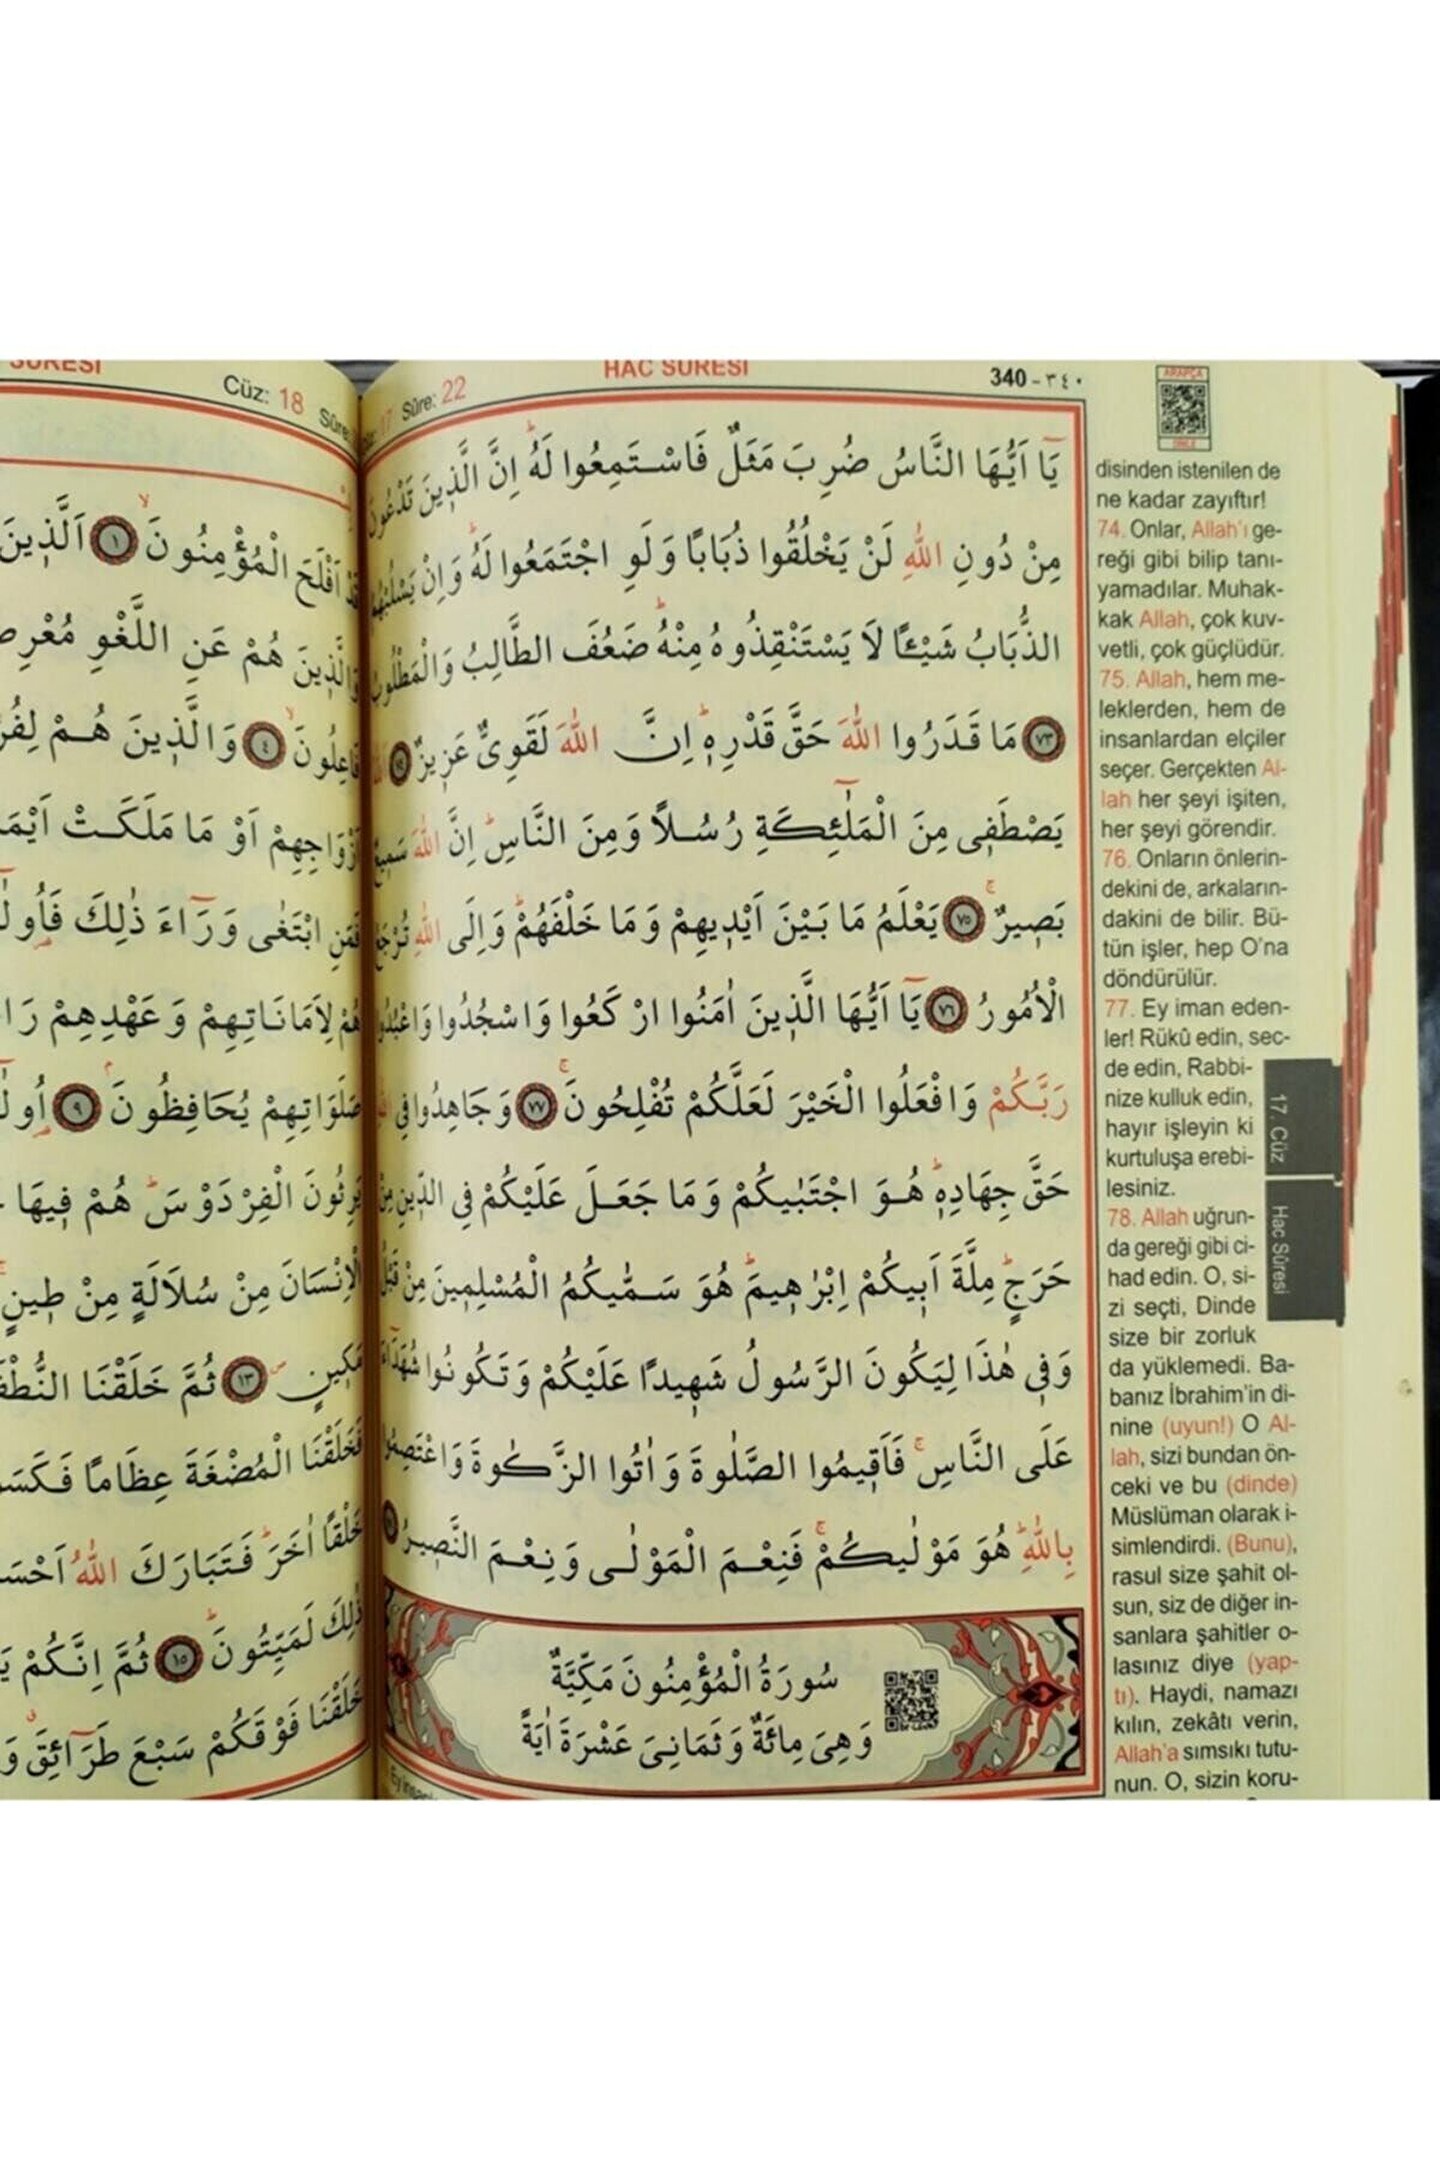 HAC SÛRESİ
Sûre: 22
340 - ٣٤٠
ARAPÇA
DİNLE
يَٓا اَيُّهَا النَّاسُ ضُرِبَ مَثَلٌ فَاسْتَمِعُوا لَهُۜ اِنَّ الَّذ۪ينَ تَدْعُونَ
مِنْ دُونِ اللّٰهِ لَنْ يَخْلُقُوا ذُبَابًا وَلَوِ اجْتَمَعُوا لَهُۜ وَاِنْ يَسْلُبْهُمُ
الذُّبَابُ شَيْـًٔا لَا يَسْتَنْقِذُوهُ مِنْهُۜ ضَعُفَ الطَّالِبُ وَالْمَطْلُوبُ
﴿٧٣﴾ مَا قَدَرُوا اللّٰهَ حَقَّ قَدْرِه۪ۜ اِنَّ اللّٰهَ لَقَوِيٌّ عَز۪يزٌ ﴿٧٤﴾
يَصْطَف۪ي مِنَ الْمَلٰٓئِكَةِ رُسُلًا وَمِنَ النَّاسِۜ اِنَّ اللّٰهَ سَم۪يعٌ
بَص۪يرٌۚ ﴿٧٥﴾ يَعْلَمُ مَا بَيْنَ اَيْد۪يهِمْ وَمَا خَلْفَهُمْۜ وَاِلَى اللّٰهِ تُرْجَعُ
الْاُمُورُ ﴿٧٦﴾ يَٓا اَيُّهَا الَّذ۪ينَ اٰمَنُوا ارْكَعُوا وَاسْجُدُوا وَاعْبُدُوا
رَبَّكُمْ وَافْعَلُوا الْخَيْرَ لَعَلَّكُمْ تُفْلِحُونَۚ ﴿٧٧﴾ وَجَاهِدُوا فِي
حَقَّ جِهَادِه۪ۜ هُوَ اجْتَبٰيكُمْ وَمَا جَعَلَ عَلَيْكُمْ فِي الدّ۪ينِ مِنْ
حَرَجٍۜ مِلَّةَ اَب۪يكُمْ اِبْرٰه۪يمَۜ هُوَ سَمّٰيكُمُ الْمُسْلِم۪ينَ مِنْ قَبْلُ
وَف۪ي هٰذَا لِيَكُونَ الرَّسُولُ شَه۪يدًا عَلَيْكُمْ وَتَكُونُوا شُهَدَٓاءَ
عَلَى النَّاسِۚ فَاَق۪يمُوا الصَّلٰوةَ وَاٰتُوا الزَّكٰوةَ وَاعْتَصِمُوا
بِاللّٰهِۜ هُوَ مَوْلٰيكُمْۚ فَنِعْمَ الْمَوْلٰى وَنِعْمَ النَّص۪يرُ
سُورَةُ الْمُؤْمِنُونَ مَكِّيَّةٌ
وَهِيَ مِائَةٌ وَثَمَانِيَ عَشْرَةَ اٰيَةً
disinden istenilen de
ne kadar zayıftır!
74. Onlar, Allah'ı ge-
reği gibi bilip tanı-
yamadılar. Muhak-
kak Allah, çok kuv-
vetli, çok güçlüdür.
75. Allah, hem me-
leklerden, hem de
insanlardan elçiler
seçer. Gerçekten Al-
lah her şeyi işiten,
her şeyi görendir.
76. Onların önlerin-
dekini de, arkaların-
dakini de bilir. Bü-
tün işler, hep O'na
döndürülür.
77. Ey iman eden-
ler! Rükû edin, sec-
de edin, Rabbi-
nize kulluk edin,
hayır işleyin ki
kurtuluşa erebi-
lesiniz.
78. Allah uğrun-
da gereği gibi ci-
had edin. O, si-
zi seçti, Dinde
size bir zorluk
da yüklemedi. Ba-
banız İbrahim'in di-
nine (uyun!) O Al-
lah, sizi bundan ön-
ceki ve bu (dinde)
Müslüman olarak i-
simlendirdi. (Bunu),
rasul size şahit ol-
sun, siz de diğer in-
sanlara şahitler o-
lasınız diye (yap-
tı). Haydi, namazı
kılın, zekâtı verin,
Allah'a sımsıkı tutu-
nun. O, sizin koru-
17. Cüz
Hac Sûresi
SÛRESİ
Cüz: 18 Sûre:
قَدْ اَفْلَحَ الْمُؤْمِنُونَۙ ﴿١﴾ اَلَّذ۪ينَ
وَالَّذ۪ينَ هُمْ عَنِ اللَّغْوِ
فَاعِلُونَۙ ﴿٤﴾ وَالَّذ۪ينَ هُمْ
اَزْوَاجِهِمْ اَوْ مَا مَلَكَتْ
فَمَنِ ابْتَغٰى وَرَٓاءَ ذٰلِكَ
هُمْ لِاَمَانَاتِهِمْ وَعَهْدِهِمْ
صَلَوَاتِهِمْ يُحَافِظُونَۢ ﴿٩﴾
يَرِثُونَ الْفِرْدَوْسَۜ هُمْ ف۪يهَا
الْاِنْسَانَ مِنْ سُلَالَةٍ مِنْ ط۪ينٍۚ
مَك۪ينٍۖ ﴿١٣﴾ ثُمَّ خَلَقْنَا
فَخَلَقْنَا الْمُضْغَةَ عِظَامًا
خَلْقًا اٰخَرَۜ فَتَبَارَكَ اللّٰهُ
ذٰلِكَ لَمَيِّتُونَۜ ﴿١٥﴾ ثُمَّ اِنَّكُمْ
خَلَقْنَا فَوْقَكُمْ سَبْعَ طَرَٓائِقَۗ